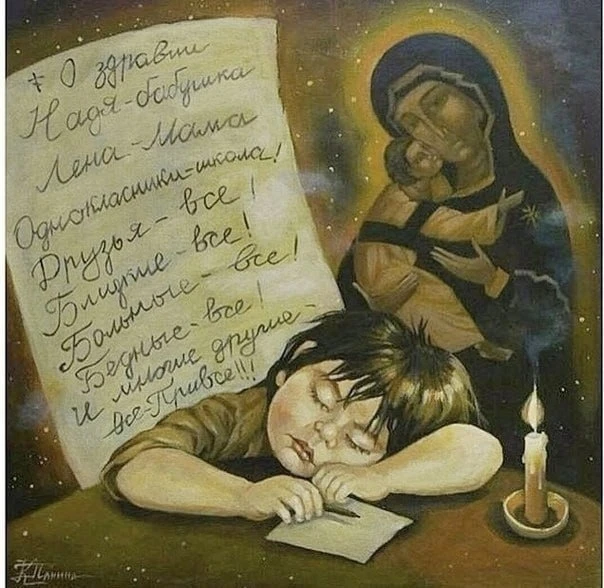 + О здравии
Надя-бабушка
Лена-Мама
Однокласники-школа!
Друзья-все!
Близкие-все!
Больные-все!
Бедные-все!
и многие другие-
все-Привсе!!!